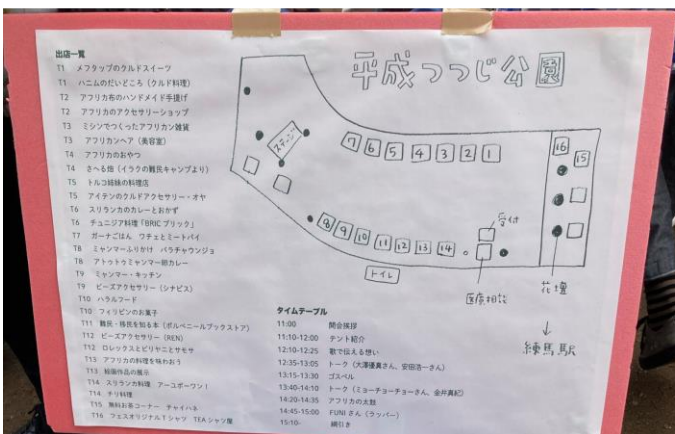 平成つつじ公園
出店一覧
T1 メフタップのクルドスイーツ
T1 ハニムのだいどころ（クルド料理）
T2 アフリカ布のハンドメイド手提げ
T2 アフリカのアクセサリーショップ
T3 ミシンでつくったアフリカン雑貨
T3 アフリカンヘア（美容室）
T4 アフリカのおやつ
T4 さへる畑（イラクの難民キャンプより）
T5 トルコ姉妹の料理店
T5 アイテンのクルドアクセサリー・オヤ
T6 スリランカのカレーとおかず
T6 チュニジア料理「BRICブリック」
T7 ガーナごはん ワチェとミートパイ
T8 ミャンマーふりかけ バラチャウンジョ
T8 アトゥトゥミャンマー卵カレー
T9 ミャンマー・キッチン
T9 ビーズアクセサリー（シナピス）
T10 ハラルフード
T10 フィリピンのお菓子
T11 難民・移民を知る本（ポルベニールブックストア）
T12 ビーズアクセサリー（REN）
T12 ロレックスとビリヤニとサモサ
T13 アフリカの料理を味わおう
T13 絵画作品の展示
T14 スリランカ料理 アーユボーワン！
T14 チリ料理
T15 無料お茶コーナー チャイハネ
T16 フェスオリジナルTシャツ TEAシャツ屋
ステージ
7 6 5 4 3 2 1
16
15
8 9 10 11 12 13 14
受付
トイレ
医療相談
花壇
↓
練馬駅
タイムテーブル
11:00 開会挨拶
11:10-12:00 テント紹介
12:10-12:25 歌で伝える想い
12:35-13:05 トーク（大澤優真さん、安田浩一さん）
13:15-13:30 ゴスペル
13:40-14:10 トーク（ミョーチョーチョーさん、金井真紀）
14:20-14:35 アフリカの太鼓
14:45-15:00 FUNIさん（ラッパー）
15:10- 綱引き